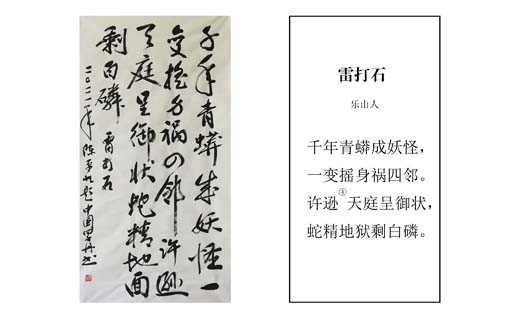 千年青蟒成妖怪一
变摇身祸四邻许逊
天庭呈御状蛇精地面
剩白磷 雷打石
二〇二一年 陈 题 中国
雷打石
乐山人
千年青蟒成妖怪，
一变摇身祸四邻。
许逊①天庭呈御状，
蛇精地狱剩白磷。